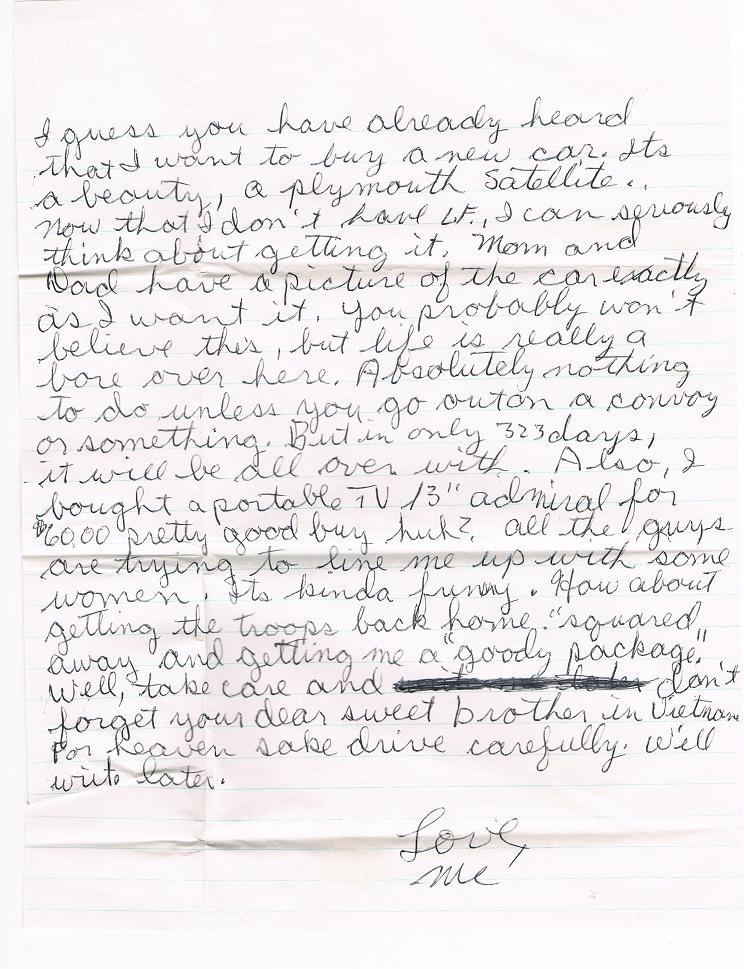 I guess you have already heard
that I want to buy a new car. Its
a beauty, a plymouth Satellite..
Now that I don't have L.F., I can seriously
think about getting it. Mom and
Dad have a picture of the car exactly
as I want it. You probably won't
believe this, but life is really a
bore over here. Absolutely nothing
to do unless you go out on a convoy
or something. But in only 323 days,
it will be all over with. Also, I
bought a portable TV 13" admiral for
$60.00 pretty good buy huh? all the guys
are trying to line me up with some
women. Its kinda funny. How about
getting the troops back home "squared
away and getting me a "goody package."
Well, take care and don't
forget your dear sweet brother in Vietnam
For heaven sake drive carefully. We'll
write later.
Love,
Me